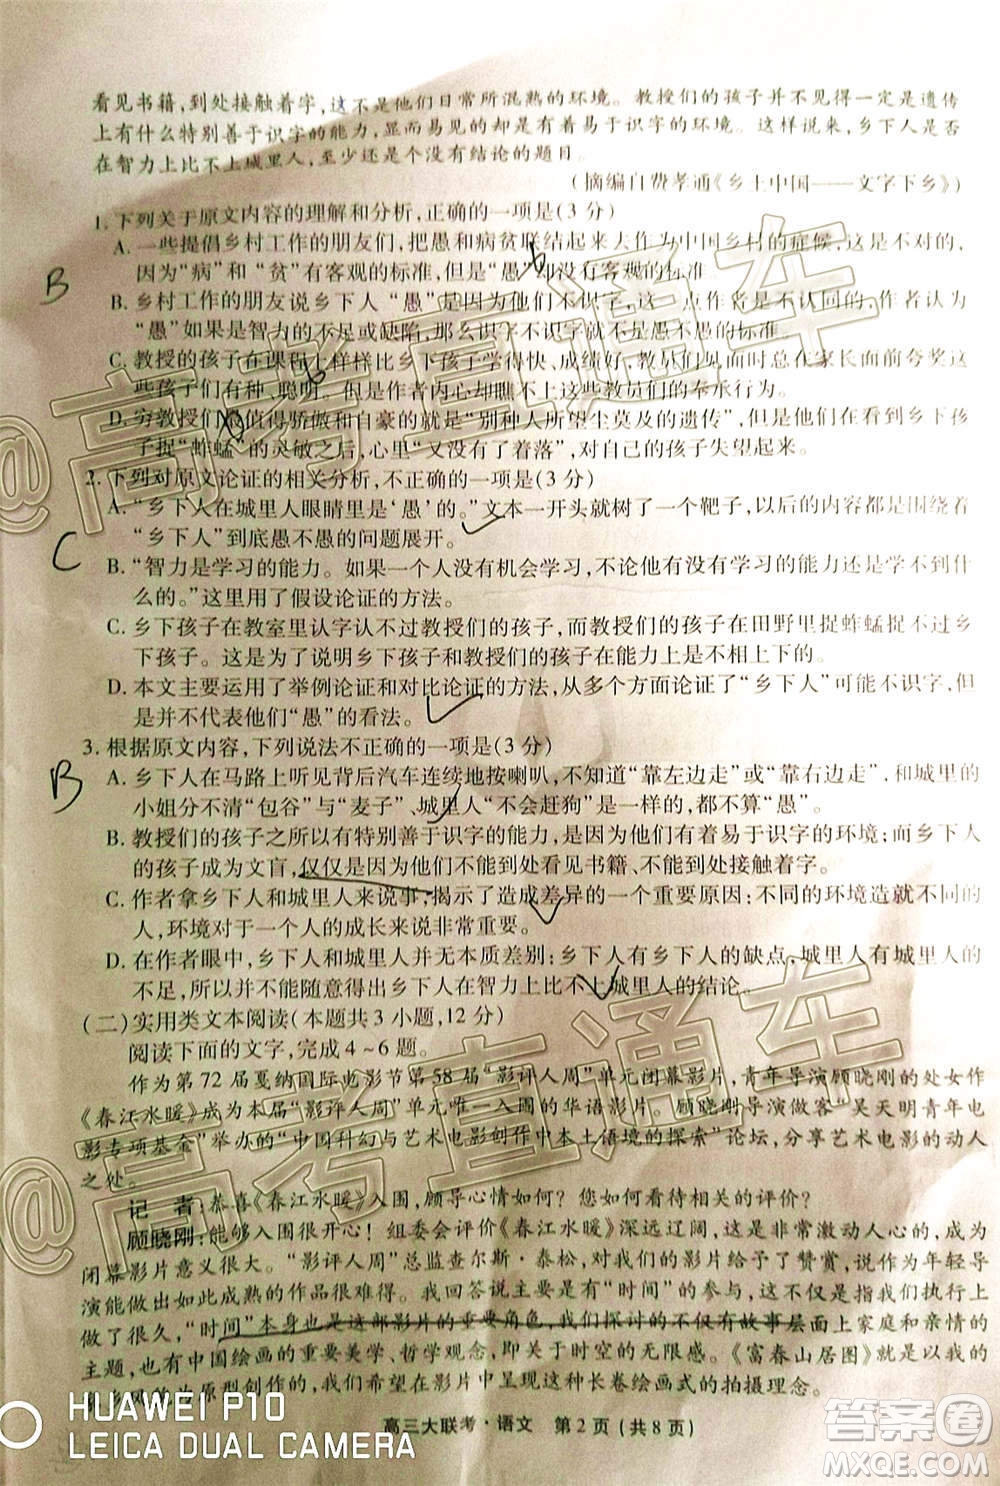 看见书籍,到处接触着字,这不是他们日常所混熟的环境。教授们的孩子并不见得一定是遗传
上有什么特别善于识字的能力,显而易见的却是有着易于识字的环境。这样说来,乡下人是否
在智力上比不上城里人,至少还是个没有结论的题目。
(摘编自费孝通《乡土中国——文字下乡》)
1. 下列关于原文内容的理解和分析,正确的一项是(3 分)
A. 一些提倡乡村工作的朋友们,把愚和病贫联结起来去作为中国乡村的症候,这是有道理的,
因为“病”和“贫”有客观的标准,但是“愚”却没有客观的标准
B
B. 乡村工作的朋友说乡下人“愚”是因为他们不识字,这一点作者是不认同的,作者认为
“愚”如果是智力的不足或缺陷,那么识字不识字就不是愚不愚的标准。
C. 教授的孩子在课程上样样比乡下孩子学得快、成绩好,教员们见面时总在家长面前夸奖这
些孩子们有种、聪明。但是作者内心却瞧不上这些教员们的奉承行为。
D. 穷教授们最值得骄傲和自豪的就是“别种人所望尘莫及的遗传”,但是他们在看到乡下孩
子捉“蚱蜢”的灵敏之后,心里“又没有了着落”,对自己的孩子失望起来。
2. 下列对原文论证的相关分析,不正确的一项是(3 分)
A. “乡下人在城里人眼睛里是‘愚’的。”文本一开头就树了一个靶子,以后的内容都是围绕着
“乡下人”到底愚不愚的问题展开。
C
B. “智力是学习的能力。如果一个人没有机会学习,不论他有没有学习的能力还是学不到什
么的。”这里用了假设论证的方法。
C. 乡下孩子在教室里认字认不过教授们的孩子,教授们的孩子在田野里捉蚱蜢捉不过乡
下孩子。这是为了说明乡下孩子和教授们的孩子在能力上是不相上下的。
D. 本文主要运用了举例论证和对比论证的方法,从多个方面论证了“乡下人”可能不识字,但
是并不代表他们“愚”的看法。
3. 根据原文内容,下列说法不正确的一项是(3 分)
B
A. 乡下人在马路上听见背后汽车连续地按喇叭,不知道“靠左边走”或“靠右边走”,和城里的
小姐分不清“包谷”与“麦子”、城里人“不会赶狗”是一样的,都不算“愚”。
B. 教授们的孩子之所以有特别善于识字的能力,是因为他们有着易于识字的环境;而乡下人
的孩子容易成为文盲,仅仅是因为他们不能到处看见书籍、不能到处接触着字。
C. 作者拿乡下人和城里人来说事,揭示了造成差异的一个重要原因:不同的环境造就不同的
人,环境对于一个人的成长非常重要。
D. 在作者眼中,乡下人和城里人并无本质差别;乡下人有乡下人的缺点,城里人有城里人的
不足,所以并不能随意得出乡下人在智力上比不上城里人的结论。
(二)实用类文本阅读(本题共 3 小题,12 分)
阅读下面的文字,完成 4~6 题。
作为第 72 届戛纳国际电影节第 58 届“影评人周”单元闭幕影片,青年导演顾晓刚的处女作
《春江水暖》成为本届“影评人周”单元唯一入围的华语影片。顾晓刚导演做客“吴天明青年电
影专项基金”举办的“中国科幻与艺术电影创作中本土语境的探索”论坛,分享艺术电影的动人
之处。
记 者:恭喜《春江水暖》入围,顾导心情如何?您如何看待相关的评价?
顾晓刚:能够入围很开心!组委会评价《春江水暖》深远辽阔,这是非常激动人心的,成为
闭幕影片意义很大。“影评人周”总监查尔斯·泰松,对我们的影片给予了赞赏,说年轻导
演能创作出如此成熟的作品很难得。我回答说主要是有“时间”的参与,在影片结构上我们
做了很久,“时间”本身也是这部影片的重要角色,我们探讨的不仅有故事层面上家庭和亲情的
主题,也有中国绘画的重要美学、哲学观念,即关于时空的无限感。《富春山居图》就是以我的
家乡风景为原型创作的,我们希望在影片中呈现这种长卷绘画式的拍摄理念。
高三大联考·语文 第 2 页(共 8 页)
HUAWEI P10
LEICA DUAL CAMERA
@高考直通车
@高考直通车
答案圈
MXQE.COM